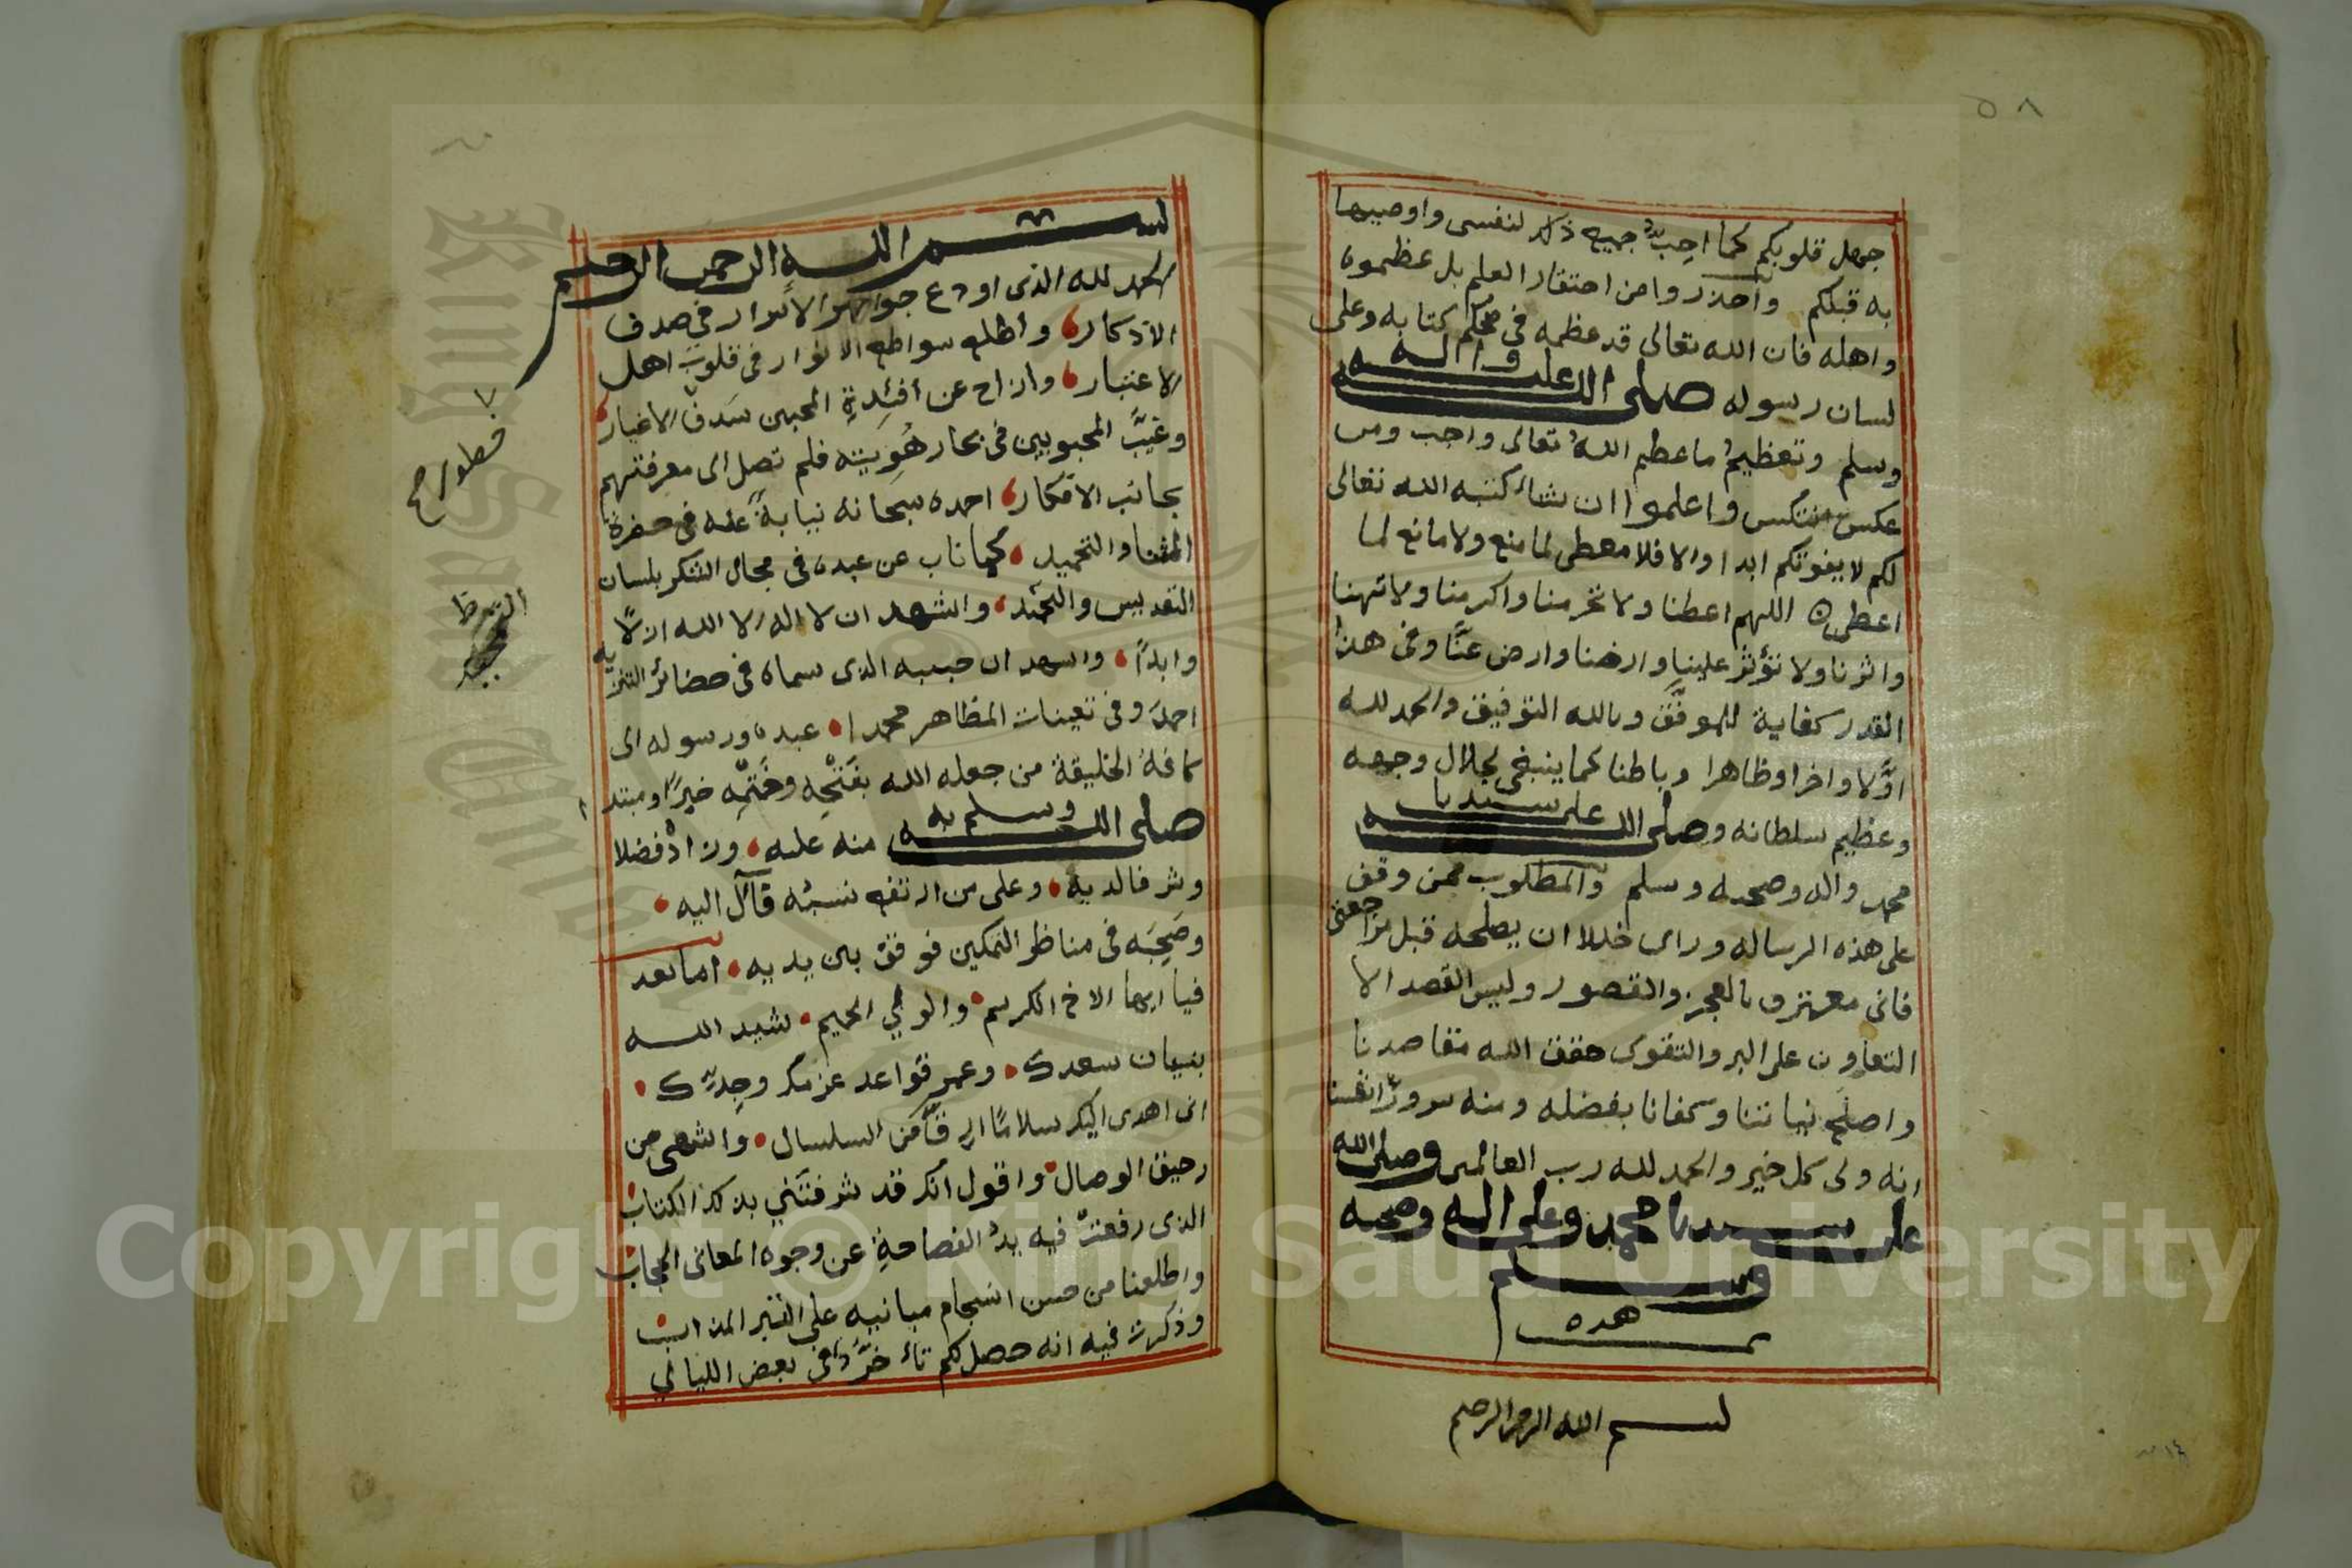 ٥٨
جهل قلوبكم كما احب جميع ذلك لنفسى واوصيها
به قبلكم واحذروا من احتقار العلم بل عظموه
واهله فان الله تعالى قد عظمه فى محكم كتابه وعلى
لسان رسوله صلى الله عليه واله
وسلم وتعظيمُ ما عظم اللهُ تعالى واجب ومن
عكس انتكس واعلموا ان شاء كتبه الله تعالى
لكم لا يفوتكم ابدا والا فلا معطى لما منع ولا مانع لما
اعطى اللهم اعطنا ولا تحرمنا واكرمنا ولا تهنا
واثرنا ولا تؤثر علينا وارضنا وارض عنَّا وفى هذا
القدر كفاية للموفَّق وبالله التوفيق والحمد لله
اوَّلا واخرا وظاهرا وباطنا كما ينبغى لجلال وجهه
وعظيم سلطانه وصلى الله على سيدنا
محمد واله وصحبه وسلم والمطلوب ممن وقف
على هذه الرساله وراى خللا ان يصلحه قبل مراجعتى
فانى معترف بالعجز والقصور وليس القصد الا
التعاون على البر والتقوى حقق الله مقاصدنا
واصلح نياتنا وكفانا بفضله ومنه شرور انفسنا
انه ولى كل خير والحمد لله رب العالمين وصلى الله
على سيدنا محمد وعلى اله وصحبه
وسلم
هذه
بسم الله الرحمن الرحيم
بسم الله الرحمن الرحيم
الحمد لله الذى اودع جواهر الاسرار فى صدف
الاذكار واطلع سواطع الانوار فى قلوب اهل
الاعتبار وازاح عن افئدةِ المحبين سَدفَ الاغيار
وغيَّب المحبوبين فى بحار هُوِيته فلم تصل الى معرفتهم
بجانب الافكار احمده سبحانه نيابةً عنه فى حضرة
الثنا والتحميد كما ناب عن عبده فى مجال الشكر بلسان
التقديس والتمجيد واشهد ان لا اله الا الله ازلًا
وابدًا واشهد ان حبيبه الذى سماه فى حضائر التنزيه
احمدَ وفى تعينات المظاهر محمدا عبده ورسوله الى
كافة الخليقة من جعله الله بفَتْحِه وخَتْمِه خبرًا ومبتدا
صلى الله وسلم به منه عليه وزاده فضلا
وشرفا لديه وعلى من ارتفع نسبُه فآل اليه
وصَحِبَه فى مناظر التمكين فوقف بين يديه اما بعد
فيا ايها الاخ الكريم والولي الحميم شيد الله
بنيان سعدك وعمر قواعد عزمك وجِدِّك
انى اهدى اليك سلامًا ارقَّ من السلسال واشهى من
رحيق الوصال واقول انك قد شرفتَني بذلك الكتاب
الذى رفعتْ فيه يدُ الفصاحةِ عن وجوه المعانى الحجاب
واطلعنا من حسن انسجام مبانيه على التبر المذاب
وذكرت فيه انه حصل لكم تأخُّرٌ فى بعض الليالي
Copyright © King Saud University